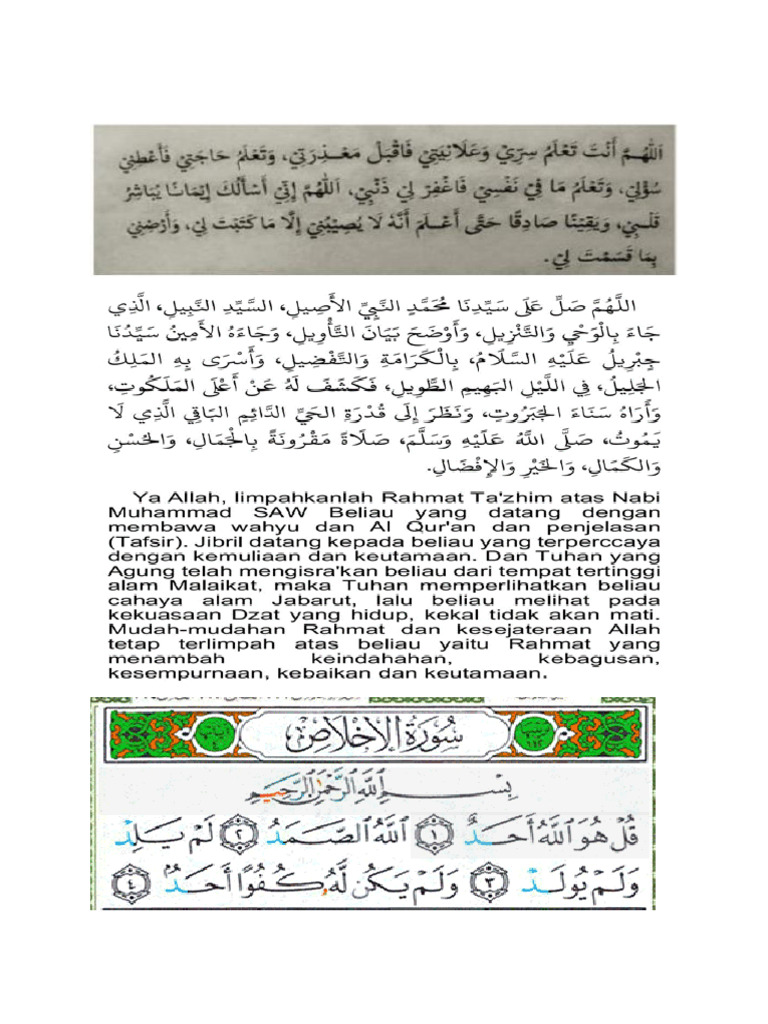 اَللّٰهُمَّ أَنْتَ تَعْلَمُ سِرِّيْ وَعَلَانِيَتِيْ فَاقْبَلْ مَعْذِرَتِيْ، وَتَعْلَمُ حَاجَتِيْ فَأَعْطِنِيْ
سُؤْلِيْ، وَتَعْلَمُ مَا فِيْ نَفْسِيْ فَاغْفِرْ لِيْ ذَنْبِيْ، اَللّٰهُمَّ إِنِّيْ أَسْأَلُكَ إِيْمَانًا يُبَاشِرُ
قَلْبِيْ، وَيَقِيْنًا صَادِقًا حَتَّى أَعْلَمَ أَنَّهُ لَا يُصِيْبُنِيْ إِلَّا مَا كَتَبْتَ لِيْ، وَأَرْضِنِيْ
بِمَا قَسَمْتَ لِيْ.
اللَّهُمَّ صَلِّ عَلَى سَيِّدِنَا مُحَمَّدٍ النَّبِيِّ الأَصِيلِ، السَّيِّدِ النَّبِيلِ، الَّذِي
جَاءَ بِالْوَحْيِ وَالتَّنْزِيلِ، وَأَوْضَحَ بَيَانَ التَّأْوِيلِ، وَجَاءَهُ الأَمِينُ سَيِّدُنَا
جِبْرِيلُ عَلَيْهِ السَّلَامُ، بِالْكَرَامَةِ وَالتَّفْضِيلِ، وَأَسْرَى بِهِ المَلِكُ
الجَلِيلُ، فِي اللَّيْلِ البَهِيمِ الطَّوِيلِ، فَكَشَفَ لَهُ عَنْ أَعْلَى المَلَكُوتِ،
وَأَرَاهُ سَنَاءَ الجَبَرُوتِ، وَنَظَرَ إِلَى قُدْرَةِ الحَيِّ الدَّائِمِ البَاقِي الَّذِي لَا
يَمُوتُ، صَلَّى اللَّهُ عَلَيْهِ وَسَلَّمَ، صَلَاةً مَقْرُونَةً بِالْجَمَالِ، وَالحُسْنِ
وَالكَمَالِ، وَالخَيْرِ وَالإِفْضَالِ.
Ya Allah, limpahkanlah Rahmat Ta'zhim atas Nabi
Muhammad SAW Beliau yang datang dengan
membawa wahyu dan Al Qur'an dan penjelasan
(Tafsir). Jibril datang kepada beliau yang terperccaya
dengan kemuliaan dan keutamaan. Dan Tuhan yang
Agung telah mengisra'kan beliau dari tempat tertinggi
alam Malaikat, maka Tuhan memperlihatkan beliau
cahaya alam Jabarut, lalu beliau melihat pada
kekuasaan Dzat yang hidup, kekal tidak akan mati.
Mudah-mudahan Rahmat dan kesejateraan Allah
tetap terlimpah atas beliau yaitu Rahmat yang
menambah keindahahan, kebagusan,
kesempurnaan, kebaikan dan keutamaan.
سُورَةُ الإِخْلَاصِ
بِسْمِ ٱللَّهِ ٱلرَّحْمَٰنِ ٱلرَّحِيمِ
قُلْ هُوَ ٱللَّهُ أَحَدٌ ١ ٱللَّهُ ٱلصَّمَدُ ٢ لَمْ يَلِدْ
وَلَمْ يُولَدْ ٣ وَلَمْ يَكُن لَّهُۥ كُفُوًا أَحَدٌۢ ٤